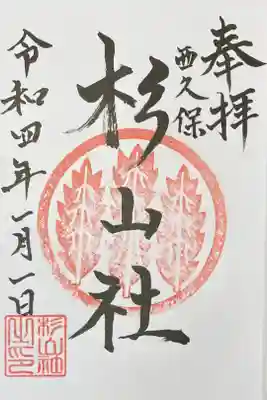 奉拝
西久保
杉山社
令和四年一月一日
杉山神
社之印